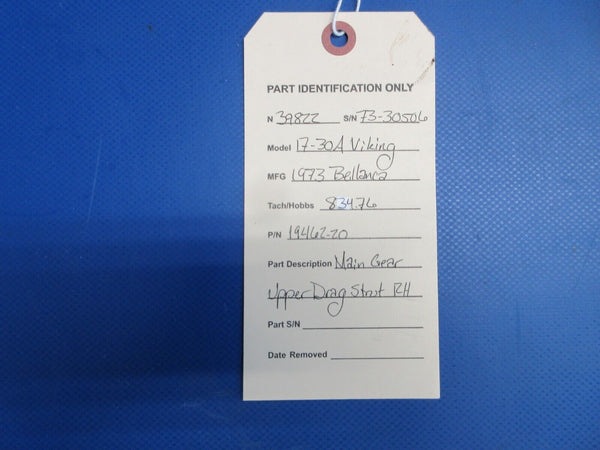 PART IDENTIFICATION ONLY
N 39822 S/N 73-30506
Model 17-30A Viking
MFG 1973 Bellanca
Tach/Hobbs 834.76
P/N 19462-20
Part Description Main Gear
Upper Drag Strut RH
Part S/N
Date Removed